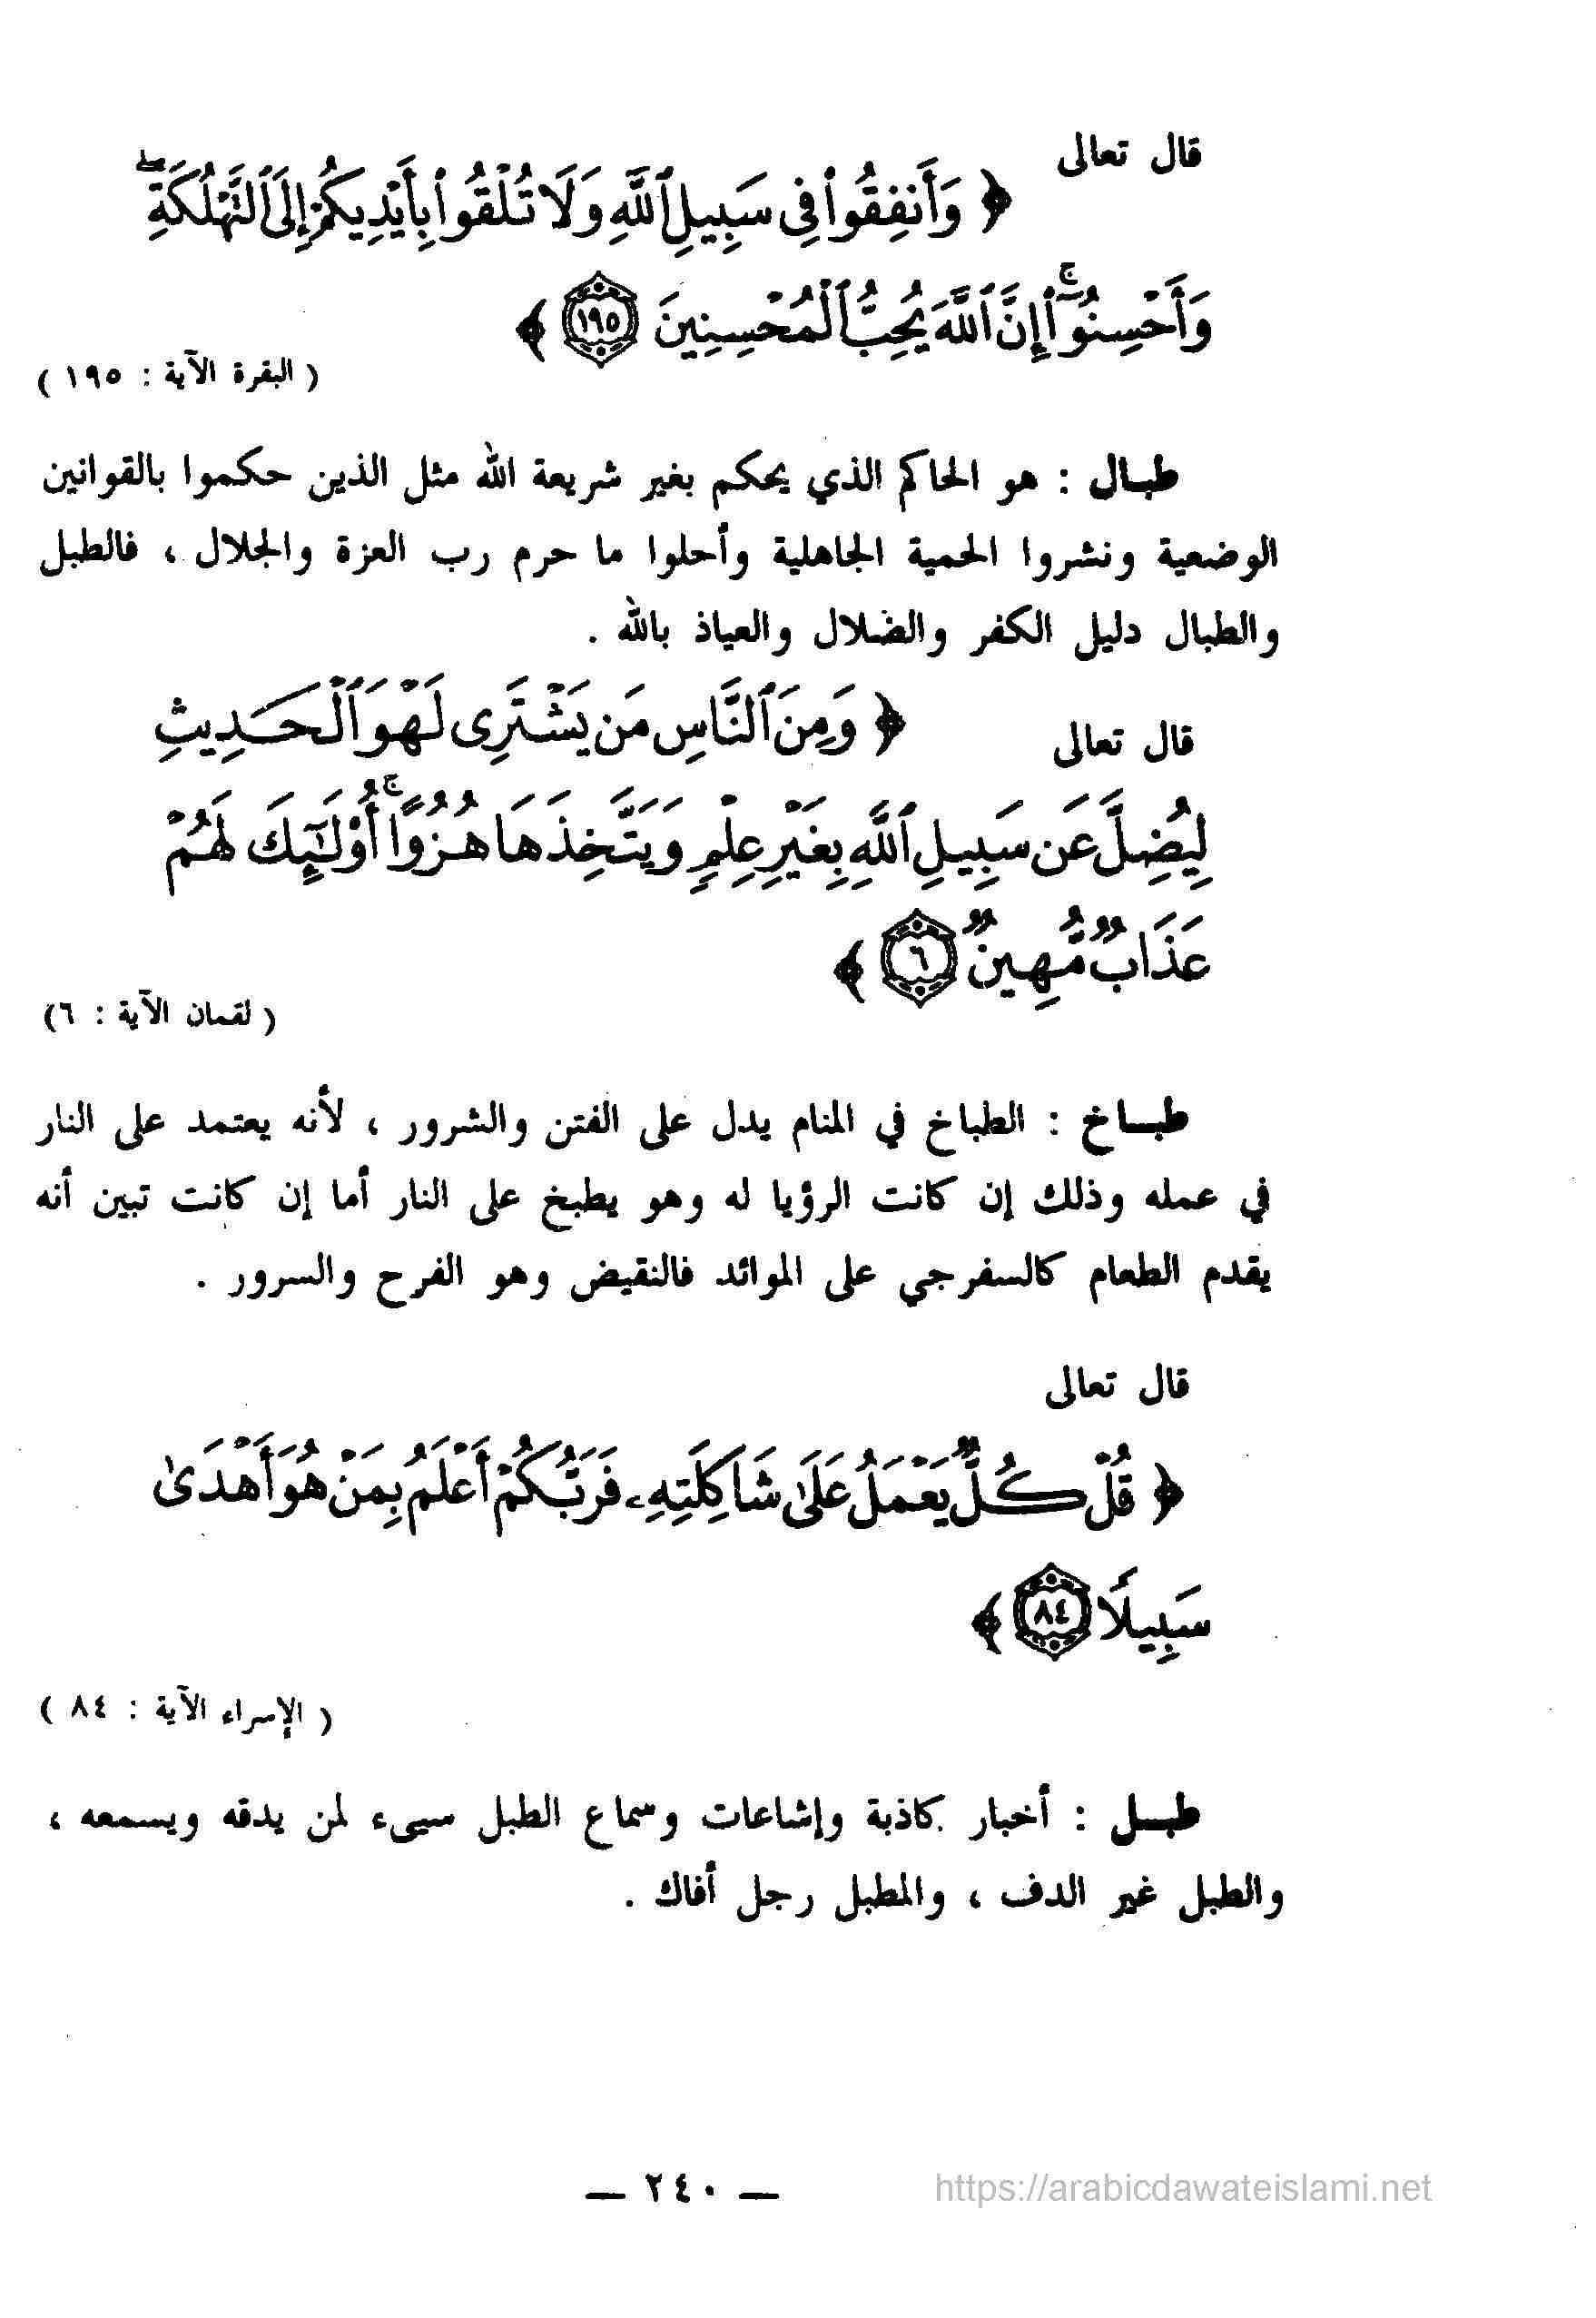 قال تعالى
﴿ وَأَنفِقُوا۟ فِى سَبِيلِ ٱللَّهِ وَلَا تُلْقُوا۟ بِأَيْدِيكُمْ إِلَى ٱلتَّهْلُكَةِ ۖ
وَأَحْسِنُوٓا۟ ۚ إِنَّ ٱللَّهَ يُحِبُّ ٱلْمُحْسِنِينَ ١٩٥ ﴾
( البقرة الآية : ١٩٥ )
طبـال : هو الحاكم الذي يحكم بغير شريعة الله مثل الذين حكموا بالقوانين
الوضعية ونشروا الحمية الجاهلية وأحلوا ما حرم رب العزة والجلال ، فالطبل
والطبال دليل الكفر والضلال والعياذ بالله .
قال تعالى ﴿ وَمِنَ ٱلنَّاسِ مَن يَشْتَرِى لَهْوَ ٱلْحَدِيثِ
لِيُضِلَّ عَن سَبِيلِ ٱللَّهِ بِغَيْرِ عِلْمٍ وَيَتَّخِذَهَا هُزُوًا ۚ أُو۟لَٰٓئِكَ لَهُمْ
عَذَابٌ مُّهِينٌ ٦ ﴾
( لقمان الآية : ٦)
طبــاخ : الطباخ في المنام يدل على الفتن والشرور ، لأنه يعتمد على النار
في عمله وذلك إن كانت الرؤيا له وهو يطبخ على النار أما إن كانت تبين أنه
يقدم الطعام كالسفرجي على الموائد فالنقيض وهو الفرح والسرور .
قال تعالى
﴿ قُلْ كُلٌّ يَعْمَلُ عَلَىٰ شَاكِلَتِهِۦ فَرَبُّكُمْ أَعْلَمُ بِمَنْ هُوَ أَهْدَىٰ
سَبِيلًا ٨٤ ﴾
( الإسراء الآية : ٨٤ )
طبــل : أخبار كاذبة وإشاعات وسماع الطبل سيىء لمن يدقه ويسمعه ،
والطبل غير الدف ، والمطبل رجل أفاك .
— ٢٤٠ —
https://arabicdawateislami.net